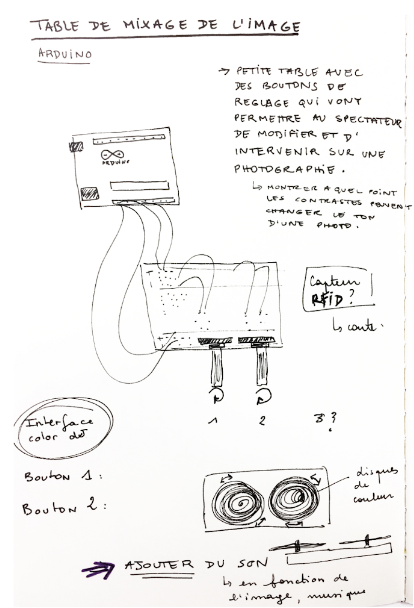 TABLE DE MIXAGE DE L'IMAGE
ARDUINO
→ PETITE TABLE AVEC
DES BOUTONS DE
REGLAGE QUI VONT
PERMETTRE AU SPECTATEUR
DE MODIFIER ET D'
INTERVENIR SUR UNE
PHOTOGRAPHIE.
↳ MONTRER A QUEL POINT
LES CONTRASTES PEUVENT
CHANGER LE TON
D'UNE PHOTO.
ARDUINO
Capteur
RFID ?
↳ carte.
1 2 3?
Interface
color
BOUTON 1 :
BOUTON 2 :
disques
de
couleur
→ AJOUTER DU SON
↳ en fonction de
l'image, musique